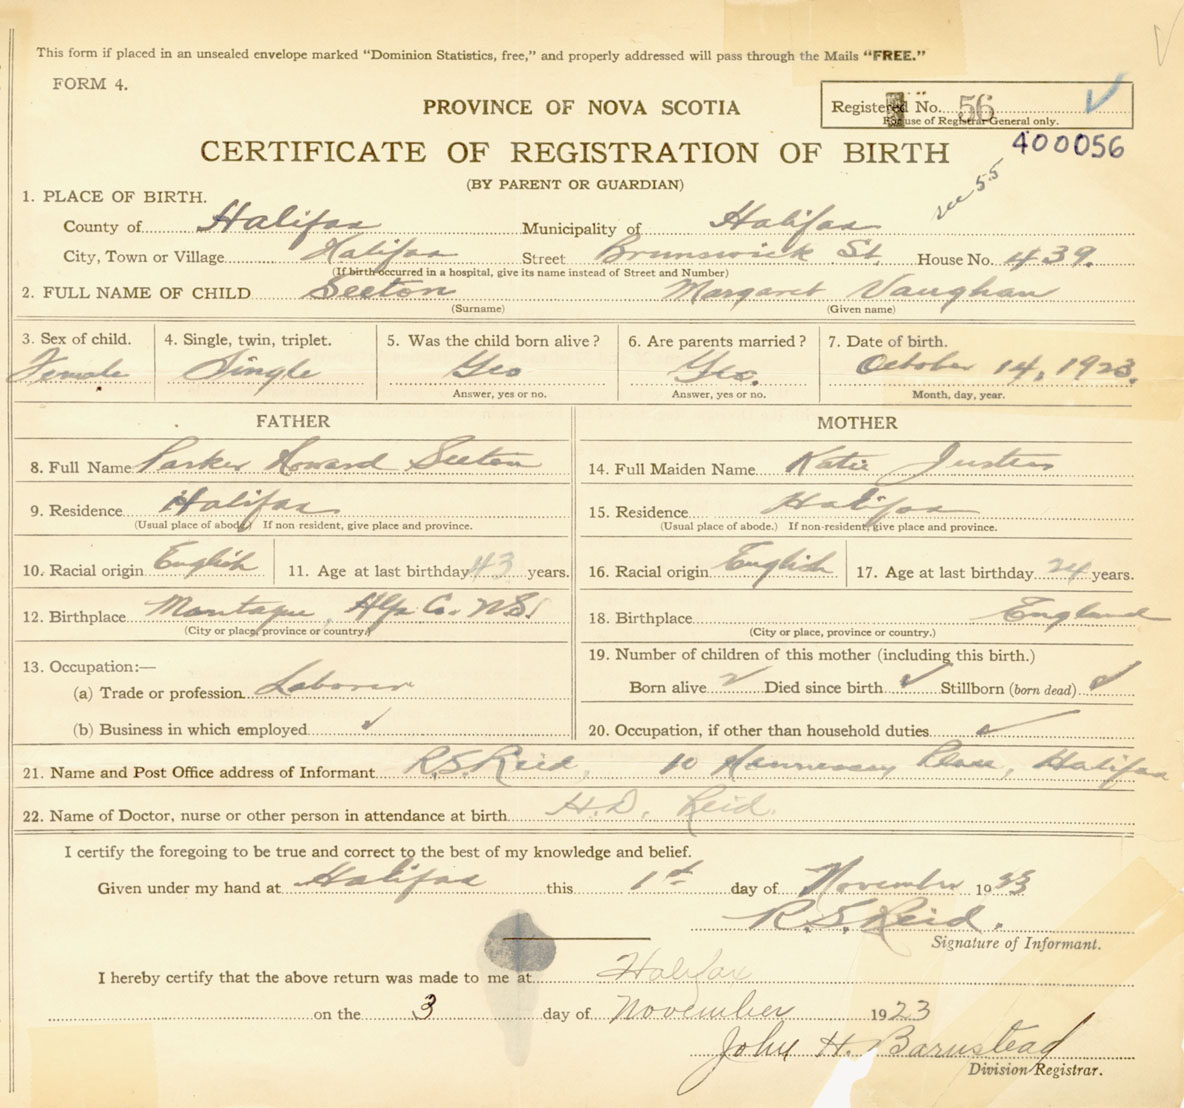 This form if placed in an unsealed envelope marked "Dominion Statistics, free," and properly addressed will pass through the Mails "FREE."
FORM 4.
PROVINCE OF NOVA SCOTIA
Registered No. 56
For use of Registrar General only.
CERTIFICATE OF REGISTRATION OF BIRTH
400056
(BY PARENT OR GUARDIAN)
see 55
1. PLACE OF BIRTH.
County of Halifax Municipality of Halifax
City, Town or Village Halifax Street Brunswick St. House No. 439.
(If birth occurred in a hospital, give its name instead of Street and Number)
2. FULL NAME OF CHILD Seeton Margaret Vaughan
(Surname) (Given name)
3. Sex of child. 4. Single, twin, triplet. 5. Was the child born alive? 6. Are parents married? 7. Date of birth.
Female Single Yes Yes. October 14, 1923.
Answer, yes or no. Answer, yes or no. Month, day, year.
FATHER MOTHER
8. Full Name Parker Howard Seeton 14. Full Maiden Name Katie
9. Residence Halifax 15. Residence Halifax
(Usual place of abode.) If non-resident, give place and province. (Usual place of abode.) If non-resident, give place and province.
10. Racial origin English 11. Age at last birthday 43 years. 16. Racial origin English 17. Age at last birthday 24 years.
12. Birthplace Hfx Co. N.S. 18. Birthplace England
(City or place, province or country.) (City or place, province or country.)
13. Occupation:— 19. Number of children of this mother (including this birth.)
(a) Trade or profession Laborer Born alive 2 Died since birth Stillborn (born dead)
(b) Business in which employed 20. Occupation, if other than household duties
21. Name and Post Office address of Informant R.S. Reid, 10 Hennessey Place, Halifax
22. Name of Doctor, nurse or other person in attendance at birth H.D. Reid.
I certify the foregoing to be true and correct to the best of my knowledge and belief.
Given under my hand at Halifax this 1st day of November 1923
R.S. Reid.
Signature of Informant.
I hereby certify that the above return was made to me at Halifax
on the 3 day of November 1923
John H. Barnstead
Division Registrar.